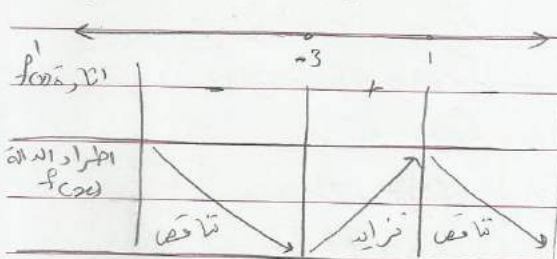 -3 1
اشارة f'(x) - + -
اطراد الدالة
f(x)
تناقص تزايد تناقص